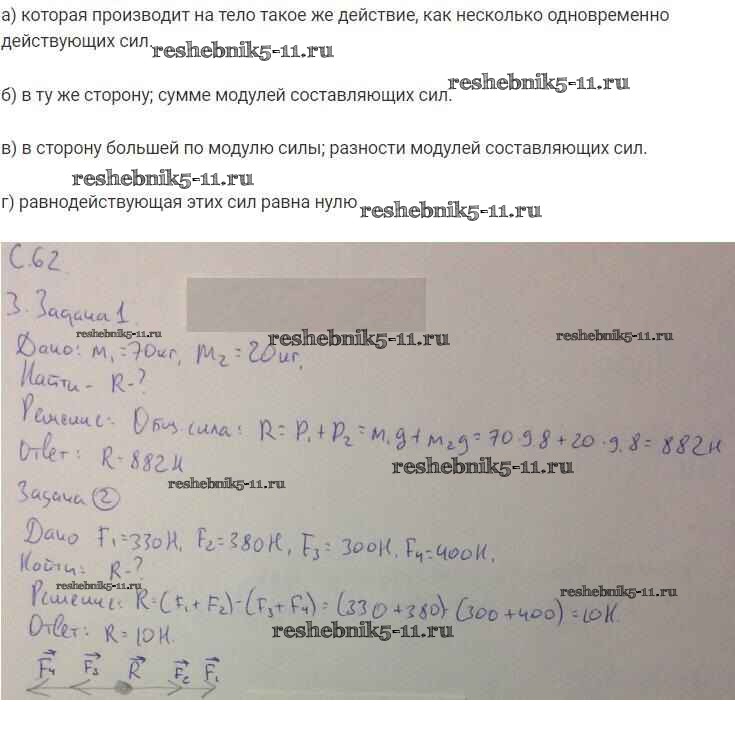 а) которая производит на тело такое же действие, как несколько одновременно
действующих сил.
reshebnik5-11.ru
reshebnik5-11.ru
б) в ту же сторону; сумме модулей составляющих сил.
в) в сторону большей по модулю силы; разности модулей составляющих сил.
reshebnik5-11.ru
г) равнодействующая этих сил равна нулю
reshebnik5-11.ru
С.62
3. Задача 1.
reshebnik5-11.ru
reshebnik5-11.ru
reshebnik5-11.ru
Дано: m₁=70кг, m₂=20кг,
Найти - R-?
Решение: Общ. сила: R = P₁+P₂ = m₁g+m₂g = 70·9 8+20·9,8 = 882 Н
Ответ: R=882Н
reshebnik5-11.ru
reshebnik5-11.ru
Задача 2
Дано F₁=330Н, F₂=380Н, F₃=300Н, F₄=400Н,
Найти: R-?
reshebnik5-11.ru
Решение: R=(F₁+F₂)-(F₃+F₄)=(330+380)-(300+400)=10Н.
Ответ: R=10Н.
reshebnik5-11.ru
F₄ F₃ R F₂ F₁